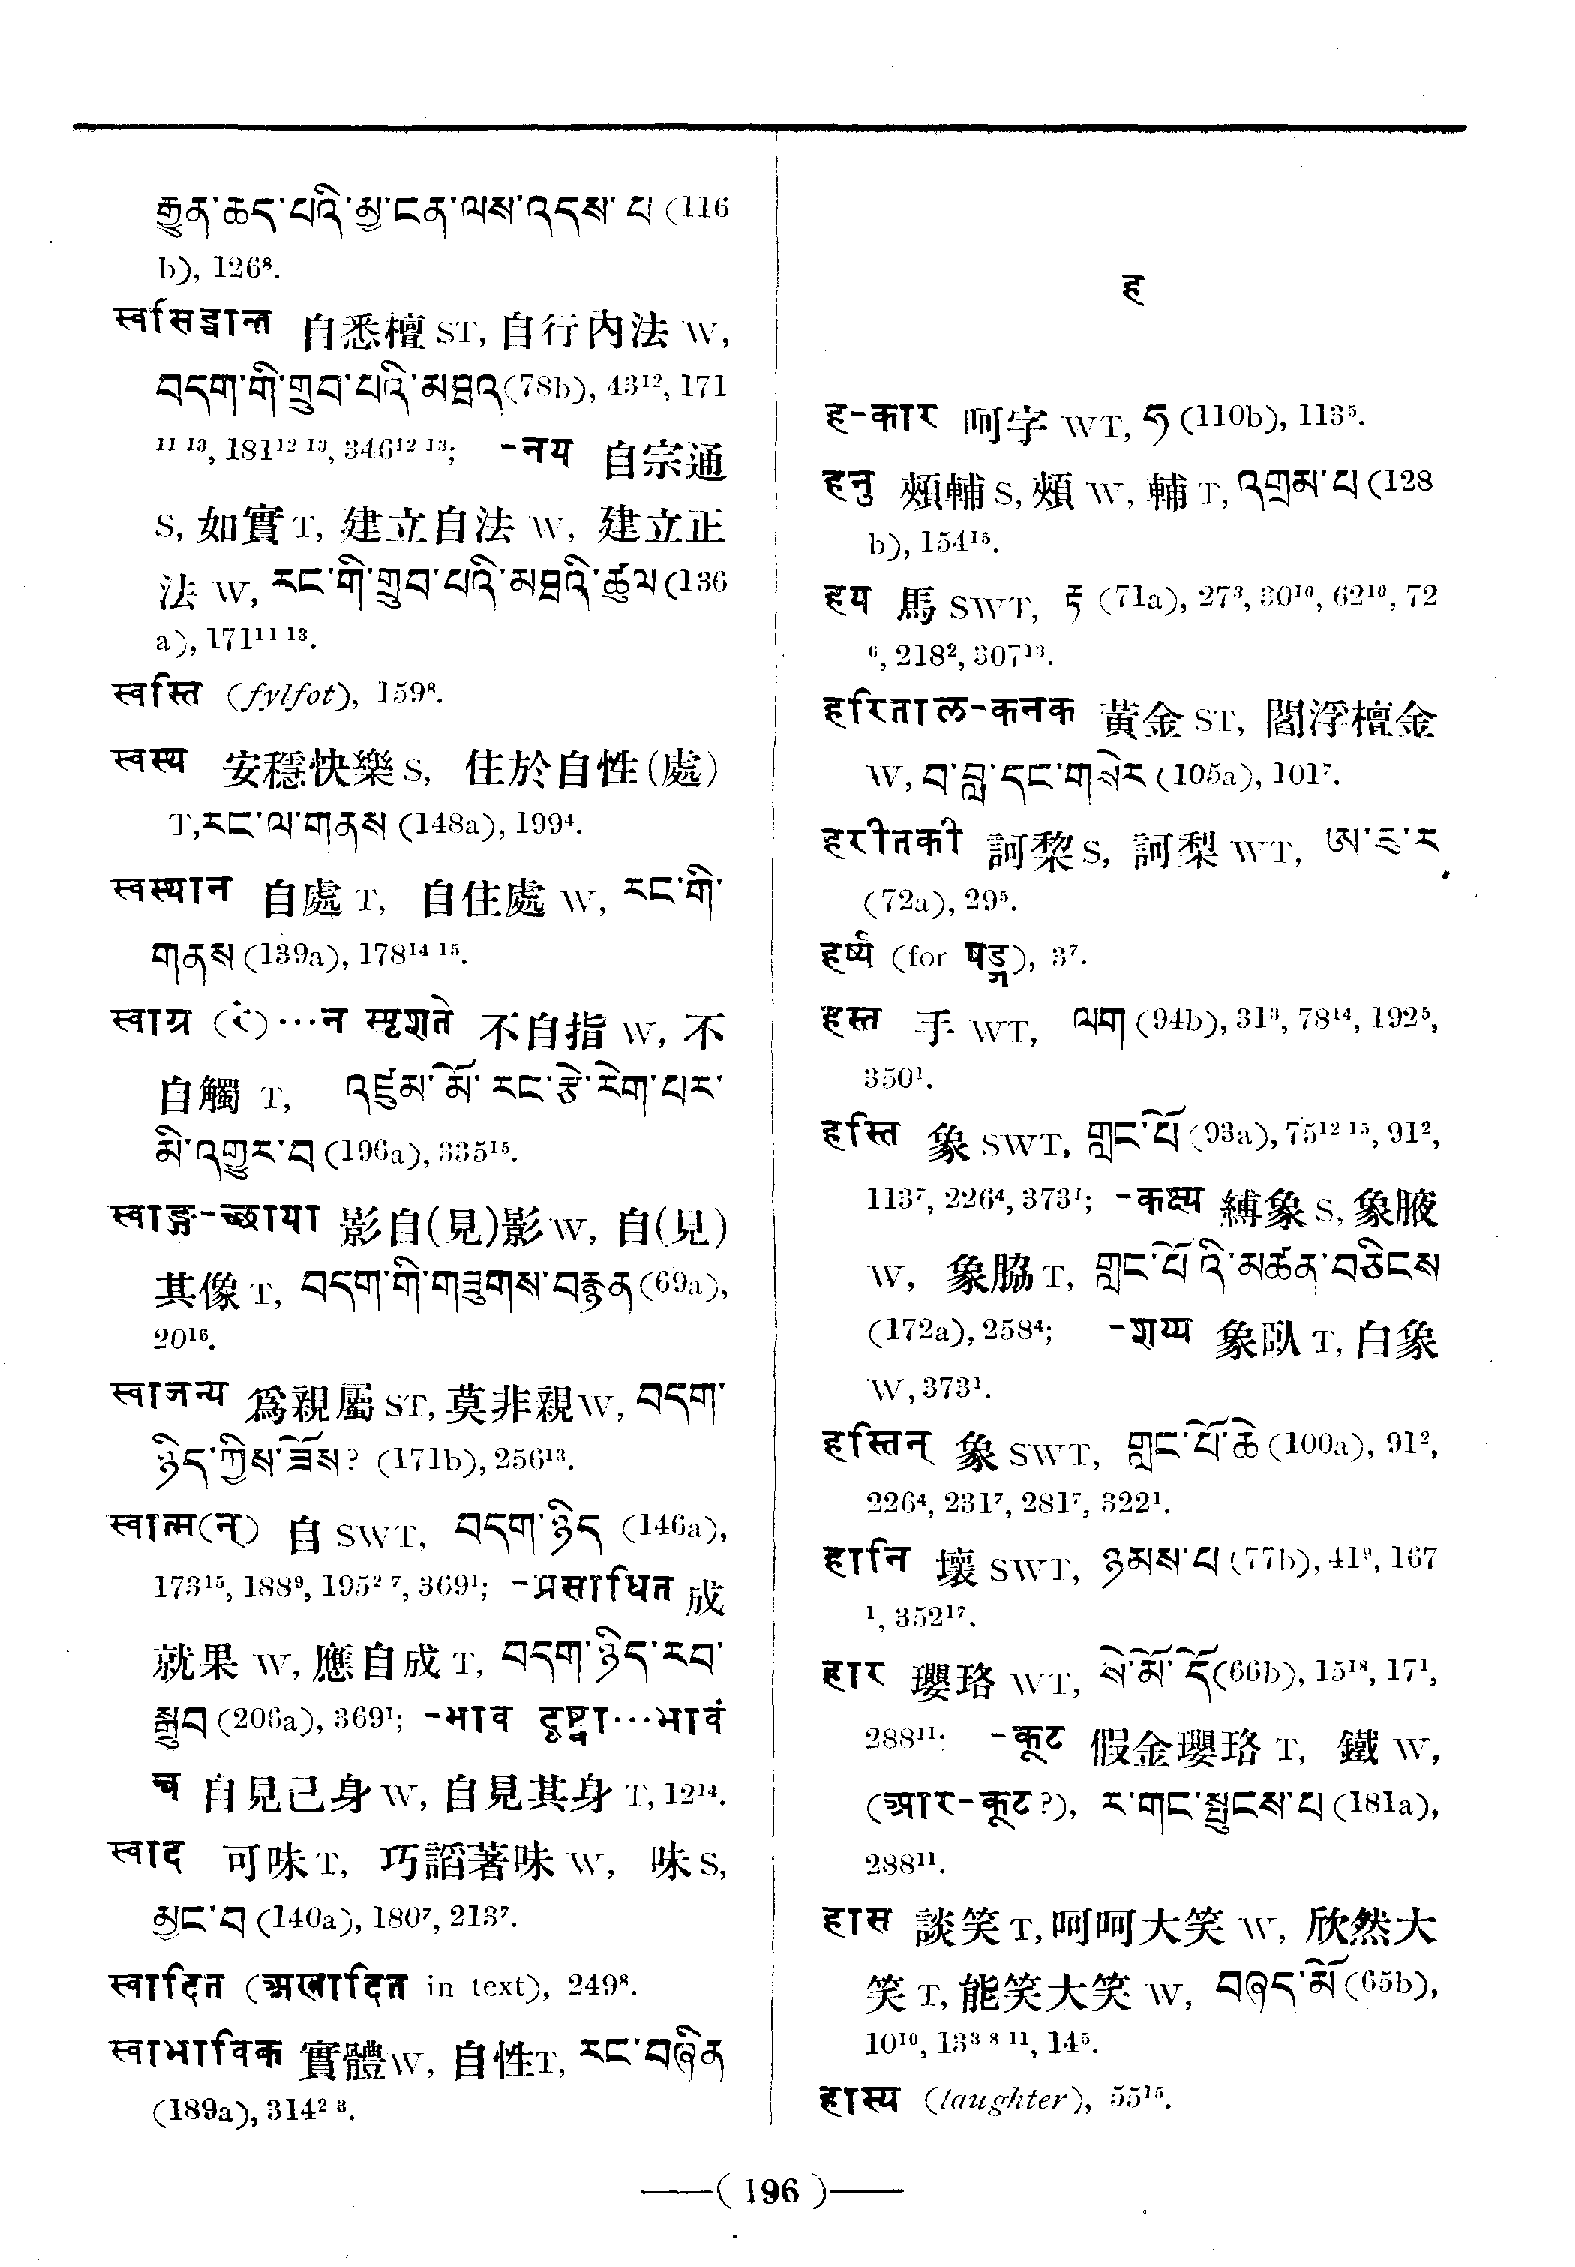 རྒྱུན་ཆད་པའི་མྱ་ངན་ལས་འདས་པ (116
b), 126⁸.
स्वसिद्धान्त 自悉檀 ST, 自行内法 W,
བདག་གི་གྲུབ་པའི་མཐའ (78b), 43¹², 171
¹¹ ¹³, 181¹² ¹³, 346¹² ¹³; -नय 自宗通
S, 如實 T, 建立自法 W, 建立正
法 W, རང་གི་གྲུབ་པའི་མཐའི་ཚུལ (136
a), 171¹¹ ¹³.
स्वस्ति (fylfot), 159⁸.
स्वस्थ 安穩快樂 S, 住於自性(處)
T, རང་ལ་གནས (148a), 199⁴.
स्वस्थान 自處 T, 自住處 W, རང་གི་
གནས (139a), 178¹⁴ ¹⁵.
स्वाग्र (ं)…न स्पृशते 不自指 W, 不
自觸 T, འཛུམ་མོ་རང་རྩེ་རེག་པར་
མི་འགྱུར་བ (196a), 335¹⁵.
स्वाङ्ग-च्छाया 影自(見)影 W, 自(見)
其像 T, བདག་གི་གཟུགས་བརྙན (69a),
20¹⁶.
स्वाजन्य 爲親屬 ST, 莫非親 W, བདག་
ཉིད་ཀྱིས་ཟོས? (171b), 256¹³.
स्वात्म(न्) 自 SWT, བདག་ཉིད (146a),
173¹⁵, 188⁹, 195² ⁷, 369¹; -प्रसाधित 成
就果 W, 應自成 T, བདག་ཉིད་རབ་
སྒྲུབ (206a), 369¹; -भाव दृष्ट्वा…भावं
च 自見己身 W, 自見其身 T, 12¹⁴.
स्वाद 可味 T, 巧謟著味 W, 味 S,
མྱང་བ (140a), 180⁷, 213⁷.
स्वादित (अखादित in text), 249⁸.
स्वाभाविक 實體 W, 自性 T, རང་བཞིན
(189a), 314² ³.
ह
ह-कार 呵字 WT, ཧ (110b), 113⁵.
हनु 頰輔 S, 頰 W, 輔 T, འགྲམ་པ (128
b), 154¹⁵.
हय 馬 SWT, རྟ (71a), 27³, 30¹⁰, 62¹⁰, 72
⁶, 218², 307¹³.
हरिताल-कनक 黃金 ST, 閻浮檀金
W, བ་བླ་དང་གསེར (105a), 101⁷.
हरीतकी 訶黎 S, 訶梨 WT, ཨ་རུ་ར
(72a), 29⁵.
हर्ष्य (for षड्ग), 3⁷.
हस्त 手 WT, ལག (94b), 31³, 78¹⁴, 192⁵,
350¹.
हस्ति 象 SWT, གླང་པོ (93a), 75¹² ¹⁵, 91²,
113⁷, 226⁴, 373¹; -कक्ष्य 縛象 S, 象腋
W, 象脇 T, གླང་པོའི་མཚན་བཅིངས
(172a), 258⁴; -शय्य 象臥 T, 白象
W, 373¹.
हस्तिन् 象 SWT, གླང་པོ་ཆེ (100a), 91²,
226⁴, 231⁷, 281⁷, 322¹.
हानि 壞 SWT, ཉམས་པ (77b), 41⁹, 167
¹, 352¹⁷.
हार 瓔珞 WT, སེ་མོ་དོ (66b), 15¹⁸, 17¹,
288¹¹; -कूट 假金瓔珞 T, 鐵 W,
(आर-कूट?), ར་གང་སྦྱངས་པ (181a),
288¹¹.
हास 談笑 T, 呵呵大笑 W, 欣然大
笑 T, 能笑大笑 W, བཞད་མོ (65b),
10¹⁰, 13³ ⁸ ¹¹, 14⁵.
हास्य (laughter), 55¹⁵.
—( 196 )—